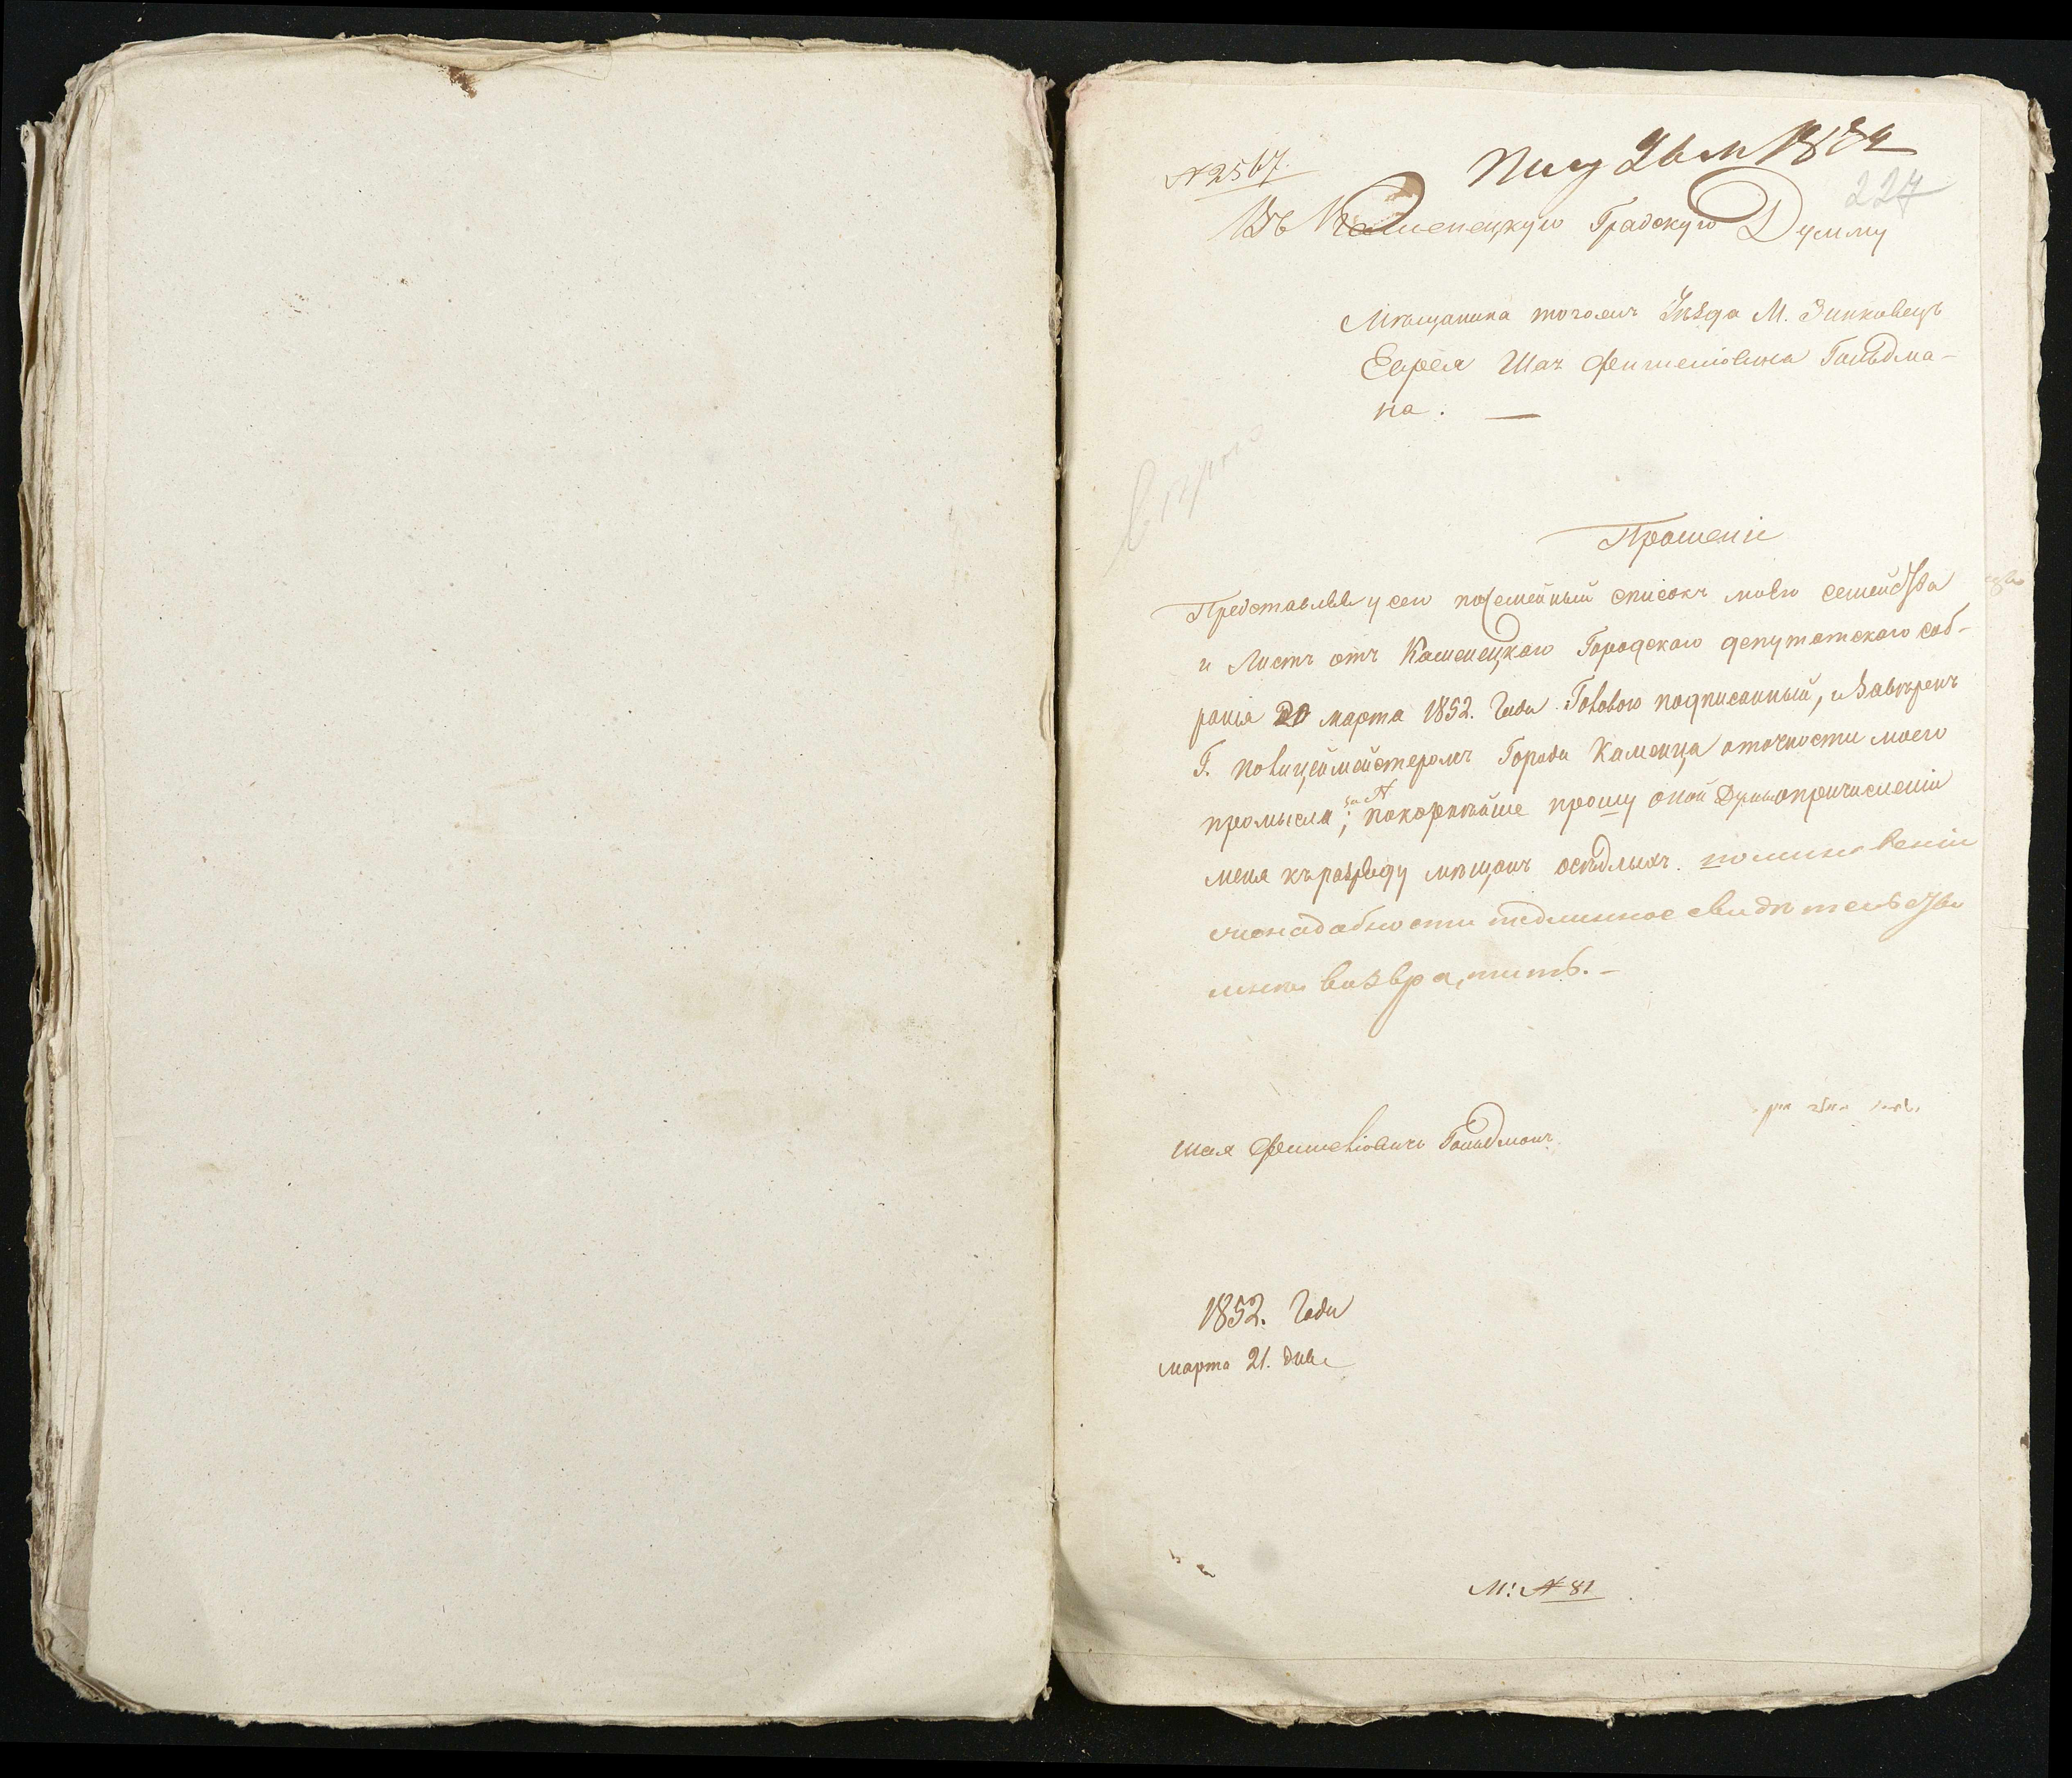 № 2567.
227
Въ Каменецкую Градскую Думму
Мѣщанина тогожъ Уѣзда М. Зинковецъ
Еврея Шаи Фишелiовича Гольдма-
на. —
Прошенiе
Представляя у сего посемейный списокъ моего семейства
и Листъ отъ Каменецкаго Городскаго депутатскаго соб-
ранiя 20 марта 1852. Года Головою подписанный, и Завѣренъ
Г. полицеймейстеромъ Города Каменца оточности моего
промысла; покорнѣйше прошу оной Думы опричисленiи
меня къ разряду мѣщанъ осѣдлыхъ. поминовенiи
снонадобности подлинное свидѣтельство
мнѣ возвратить. —
Шая Фишелiовичъ Гольдманъ
1852. Года
марта 21. дня
М: № 81